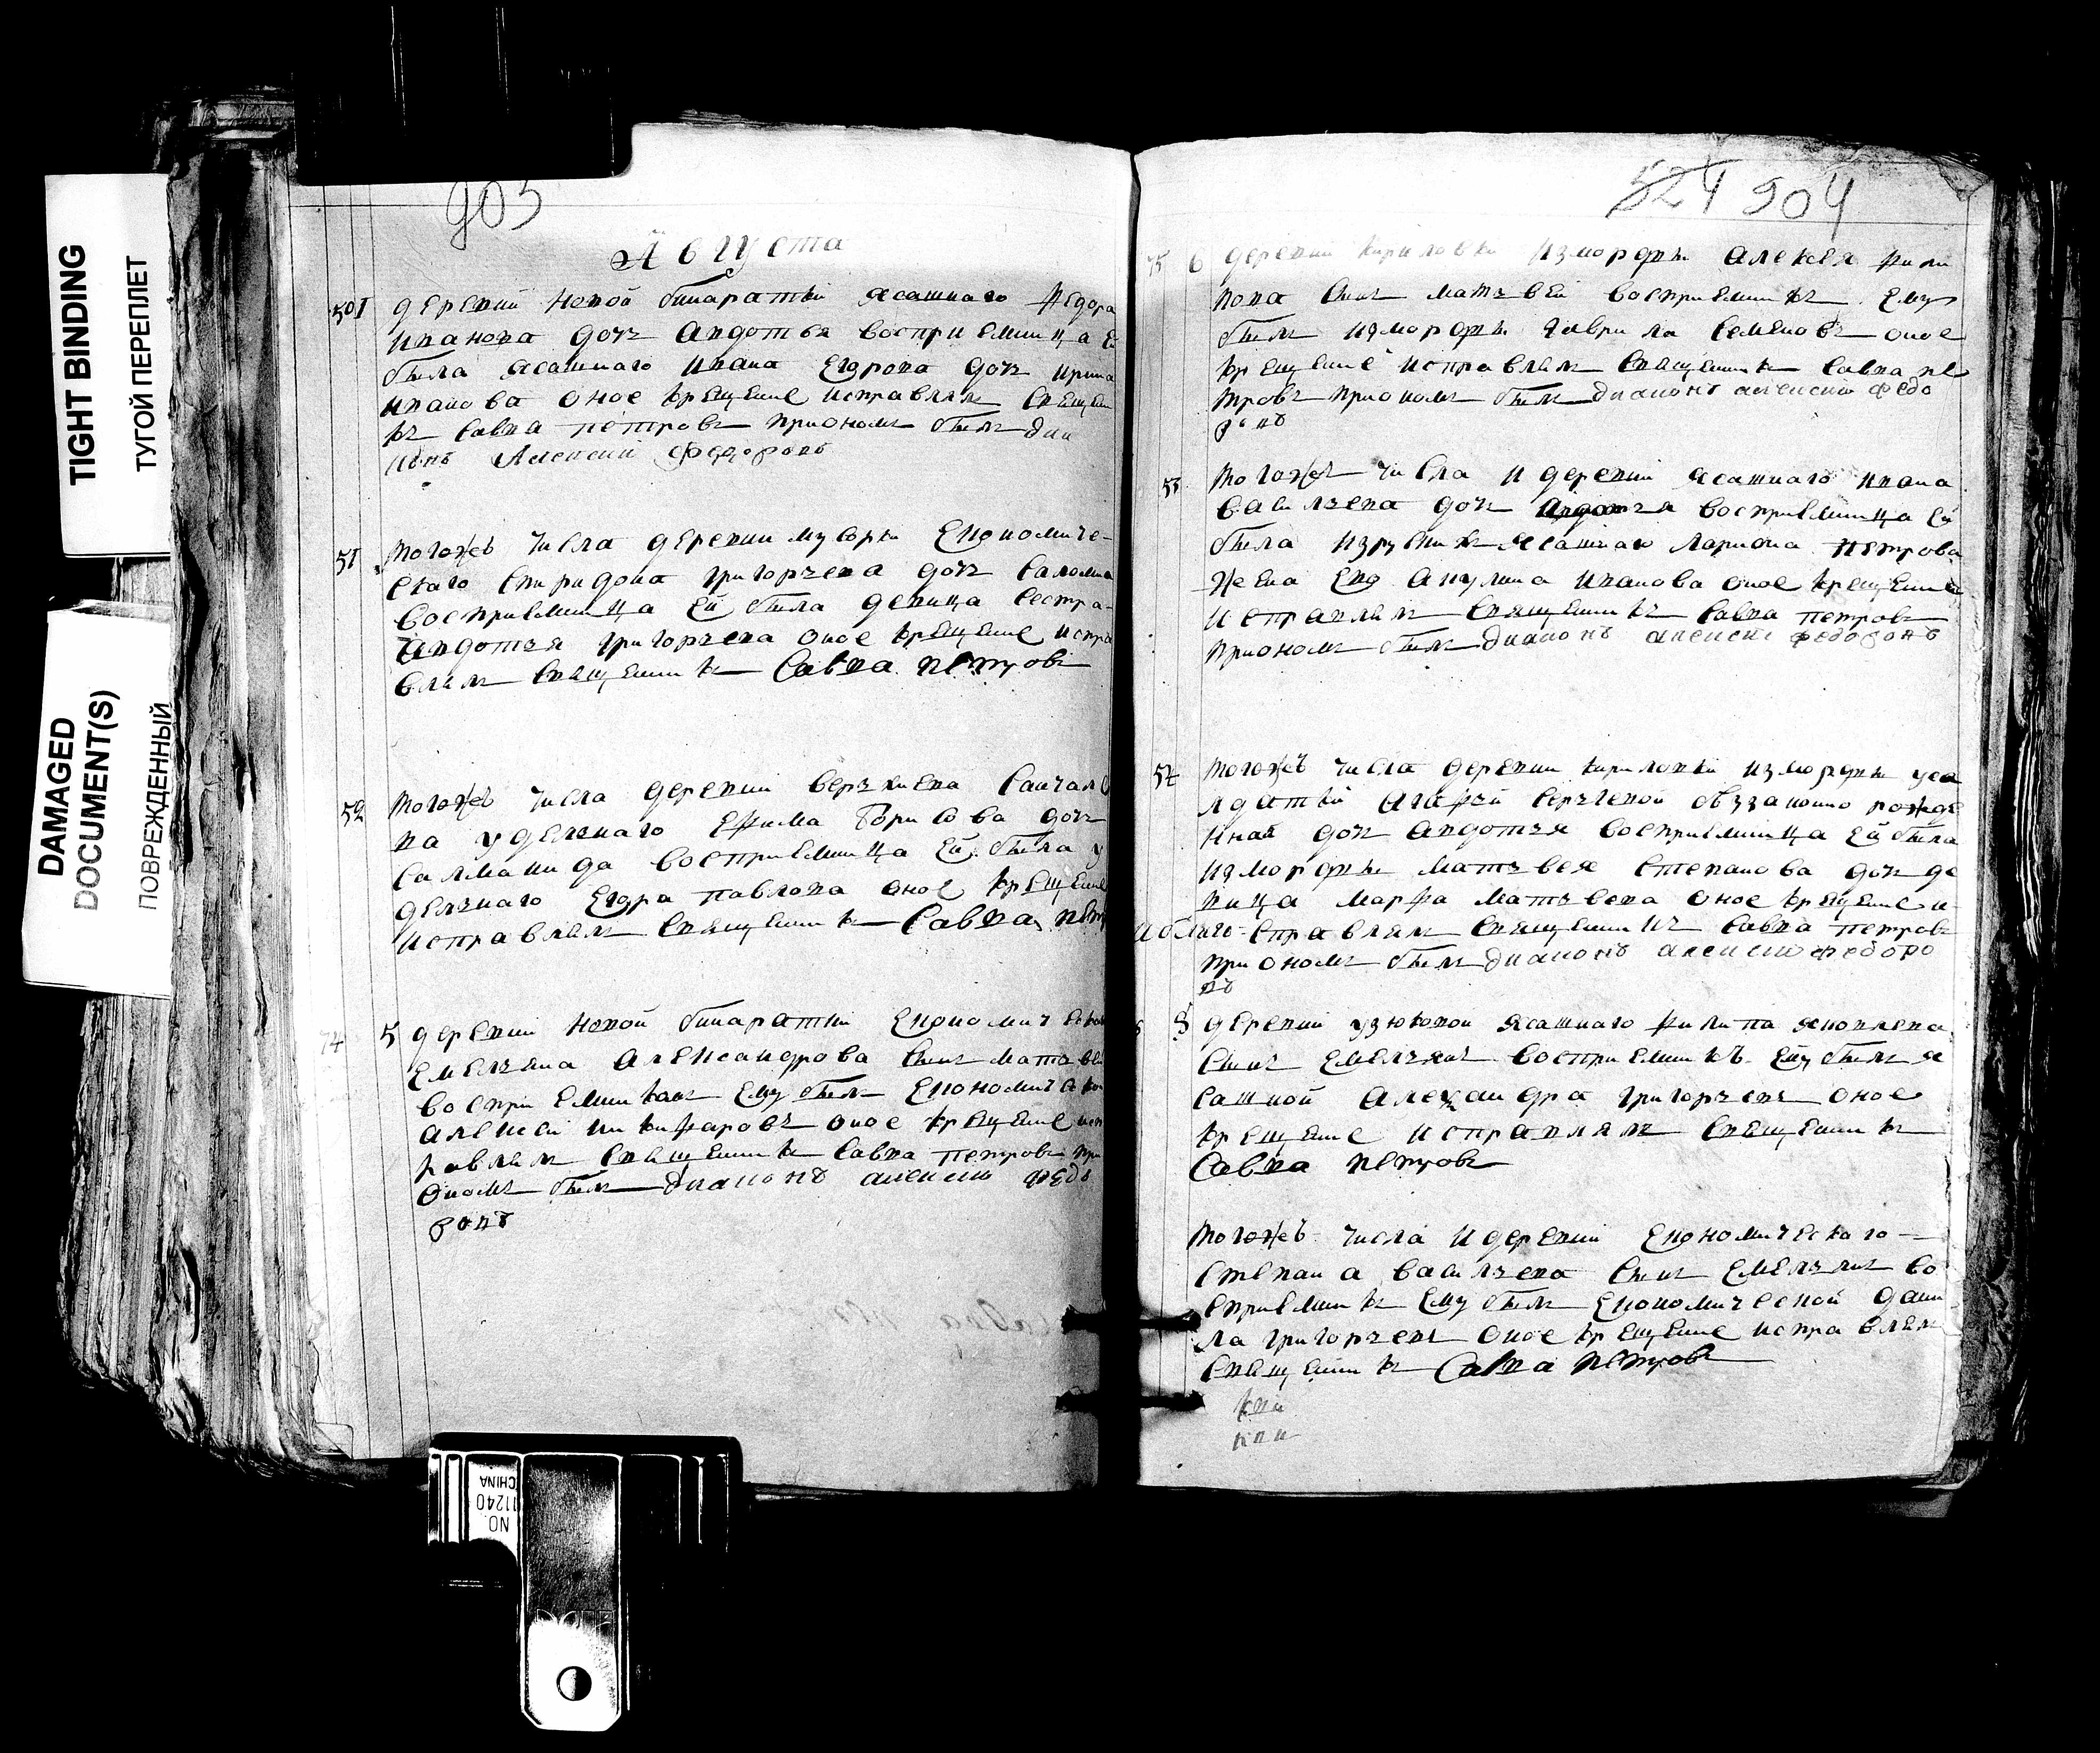 TIGHT BINDING
ТУГОЙ ПЕРЕПЛЕТ
DAMAGED
DOCUMENT(S)
ПОВРЕЖДЕННЫЙ
903
Августа
50 1 деревни новой бинаратки ясашнаго Федора
иванова дочь авдотья восприемница ей
была ясашнаго ивана егорова дочь ирина
иванова оное крещение исправлял священи
къ савва петровъ приономъ былъ дия
конъ Алексей Федоровъ
51 тогожъ числа деревни мусорки економиче-
скаго спиридона григорьева дочь саломия
восприемница ей была девица сестра
авдотья григорьева оное крещение испра
влялъ священникъ Савва петровъ
52 тогожъ числа деревни верхнева санчале
ва удельнаго ефима борисова дочь
салманида восприемница ей была у
дельнаго егора павлова оное крещение
исправлялъ священникъ Савва петр
74 5 деревни новой бинаратки економическ
емельяна александрова сынъ матвей
восприемникомъ ему былъ економическ
алексей никифаровъ оное крещение исп
равлялъ священникъ савва петровъ при
ономъ былъ диаконъ алексей федо
ровъ
524 904
75 6 деревни кириловки измордвы алексея фили
пова сынъ матвей восприемникъ ему
былъ измордвы гаврила семеновъ оное
крещение исправлялъ священникъ савва пе
тровъ приономъ былъ диаконъ алексей федо
ровъ
53 тогожъ числа и деревни ясашнаго ивана
васильева дочь восприемница ей
была изрусникъ ясашнаго лариона петрова
жена акулина иванова оное крещение
исправлялъ священникъ савва петровъ
приономъ былъ диаконъ алексей федоровъ
54 тогожъ числа деревни кириловки измордвы усо
лдатки агафьи сергеевой обзаконно рожде
нная дочь авдотья восприемница ей была
измордвы матвея степанова дочь де
вица марфа матвеева оное крещение и
справлялъ священникъ савва петровъ
приономъ былъ диаконъ алексей федоро
въ
8 деревни узюковой ясашнаго филипа яковлева
сынъ емельянъ восприемникъ ему былъ я
сашной александра григорьевъ оное
крещение исправлялъ священникъ
Савва петровъ
тогожъ числа и деревни економическаго
степана васильева сынъ емельянъ во
сприемникъ ему былъ економической дани
ла григорьевъ оное крещение исправлялъ
священникъ Савва петровъ
NO.
11240
CHINA